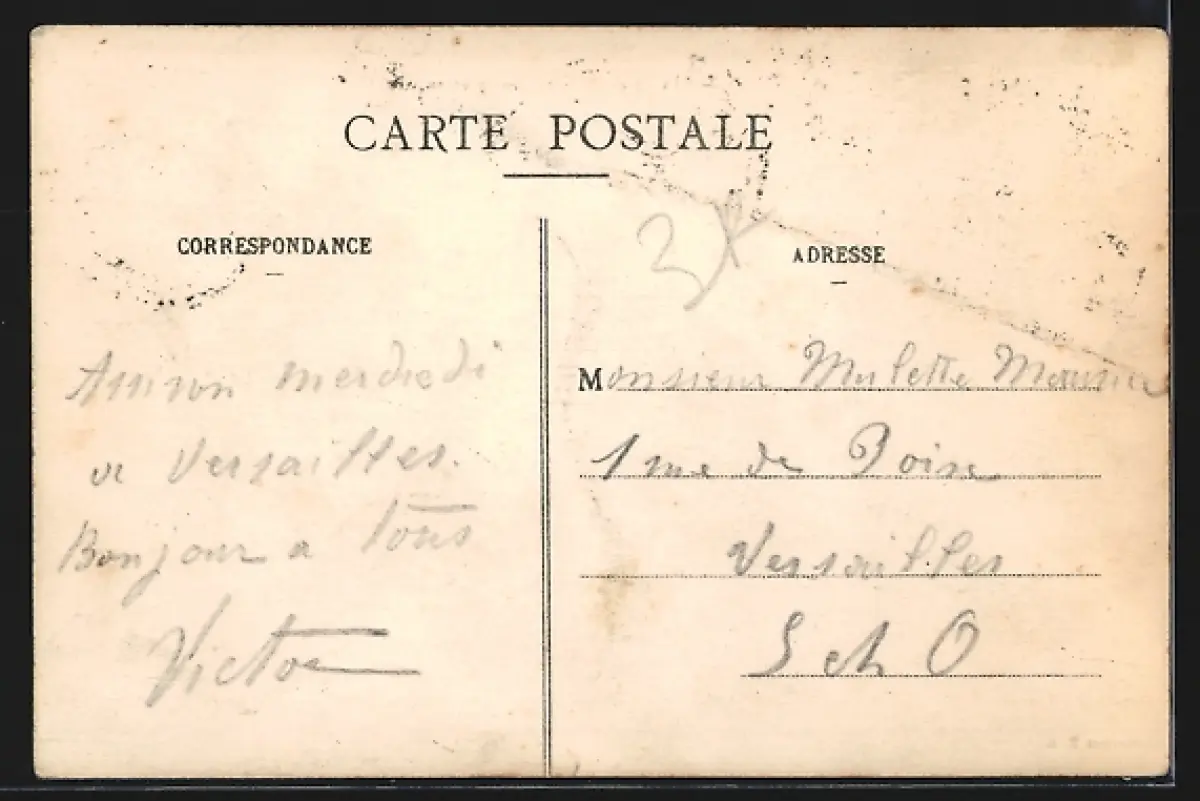 CARTE POSTALE
CORRESPONDANCE
ADRESSE
mercredi
a Versailles.
Bonjour a tous
Victor
Monsieur Mulette
1 rue de
Versailles
S et O